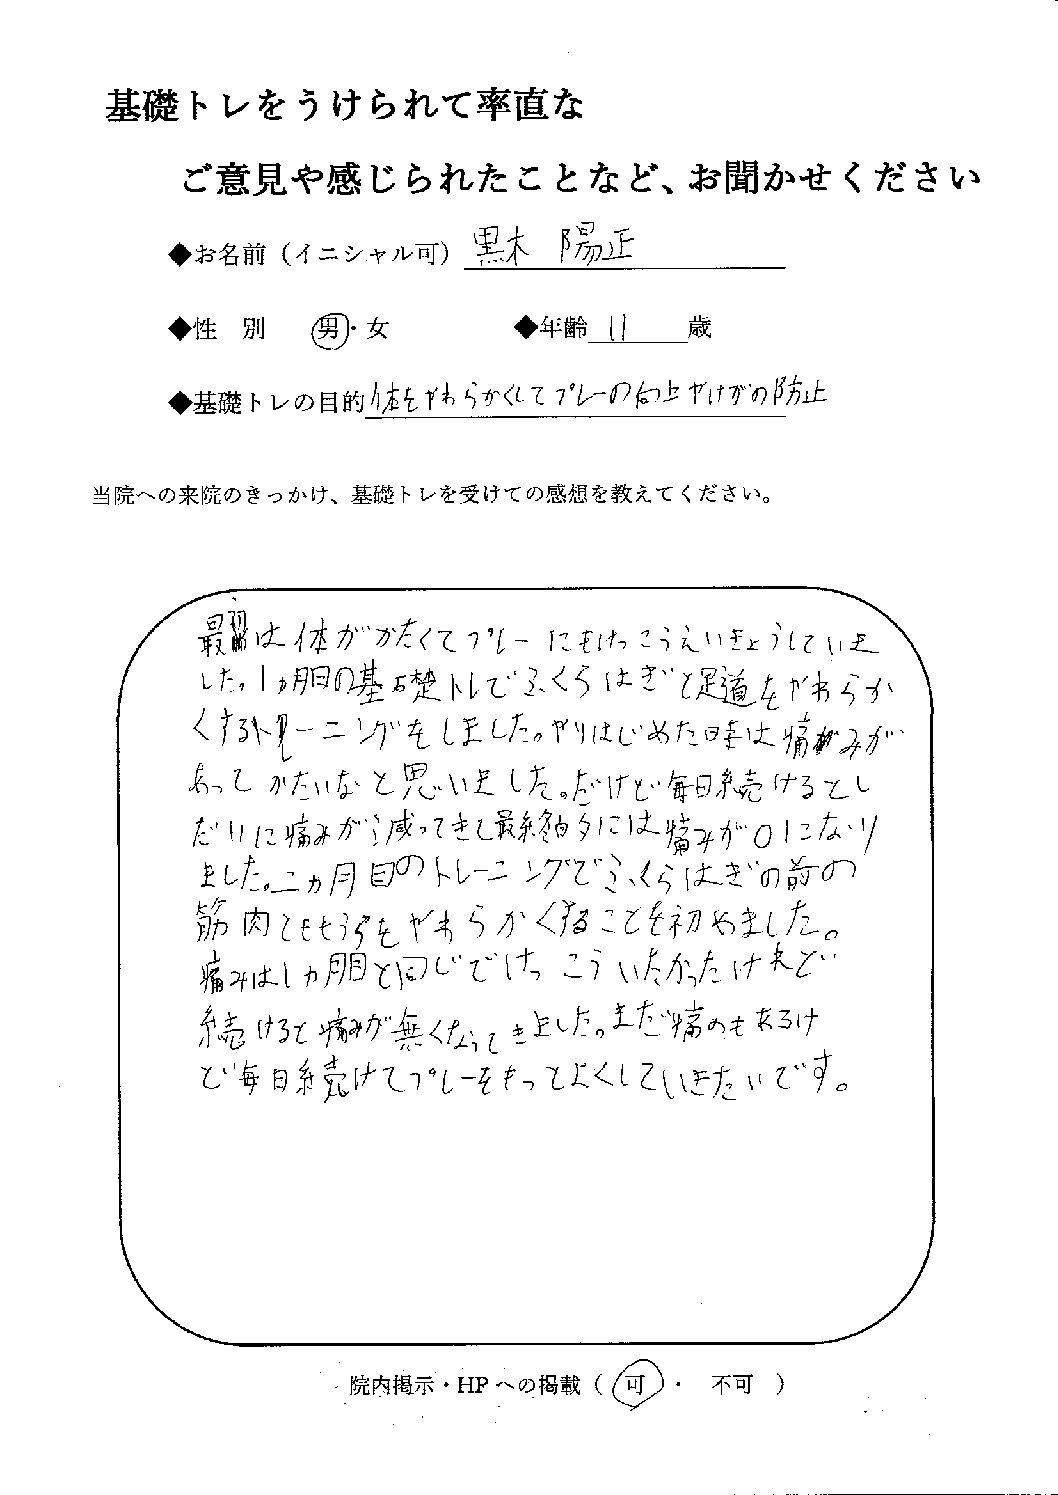 基礎トレをうけられて率直な
ご意見や感じられたことなど、お聞かせください
◆お名前（イニシャル可） 黒木 陽正
◆性 別 男・女 ◆年齢 11 歳
◆基礎トレの目的 体をやわらかくしてプレーの向上やけがの防止
当院への来院のきっかけ、基礎トレを受けての感想を教えてください。
最初は体がかたくてプレーにもけっこうえいきょうしていま
した。1ヵ月目の基礎トレでふくらはぎと足道をやわらか
くするトレーニングをしました。やりはじめた日は痛みが
あってかたいなと思いました。だけど毎日続けるとし
だいに痛みが減ってきて最終的には痛みが0になり
ました。二ヵ月目のトレーニングでふくらはぎの前の
筋肉とももうらをやわらかくすることを初めました。
痛みは1ヵ月目と同じでけっこういたかったけれど
続けると痛みが無くなってきました。まだ痛のもあるけ
ど毎日続けてプレーをもっとよくしていきたいです。
院内掲示・HPへの掲載（ 可 ・ 不可 ）